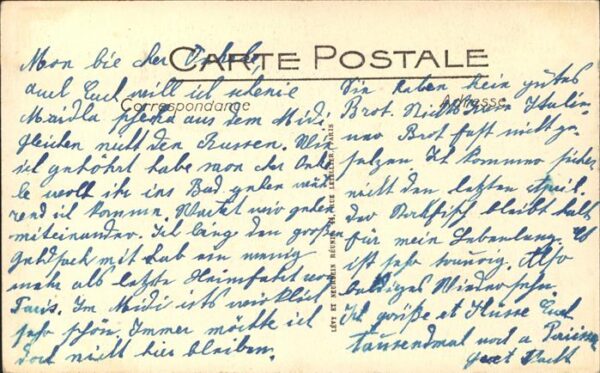 CARTE POSTALE
Correspondance
Adresse
auch Euch will ich schenie
aus dem Midi
gleichen nutt den Russen. Wie
ich gehöhrt habe von der
le wollt ihr ins Bad gehen wäh
rend ich komme. Wartet wir gehen
miteinander. Ich bing den grossen
Geldsack mit hab ein wenig
mehr als letzte Heimfahrt von
Paris. Im Midi ists wirklich
sehr schön. Immer möchte ich
doch nicht hier bleiben.
Sie haben kein gutes
Brot. Italie
ner Brot fast nicht ge
salzen. Ich komme sicher
nicht den letzten April.
der Stockfisch bleibt halt
für mein Lebenlang. Es
ist sehr traurig. Also
baldiges Wiedersehn.
Ich grüße et Küsse Euch
tausendmal
guet Nacht
LÉVY ET NEURDEIN RÉUNIS, 44, RUE LETELLIER, PARIS